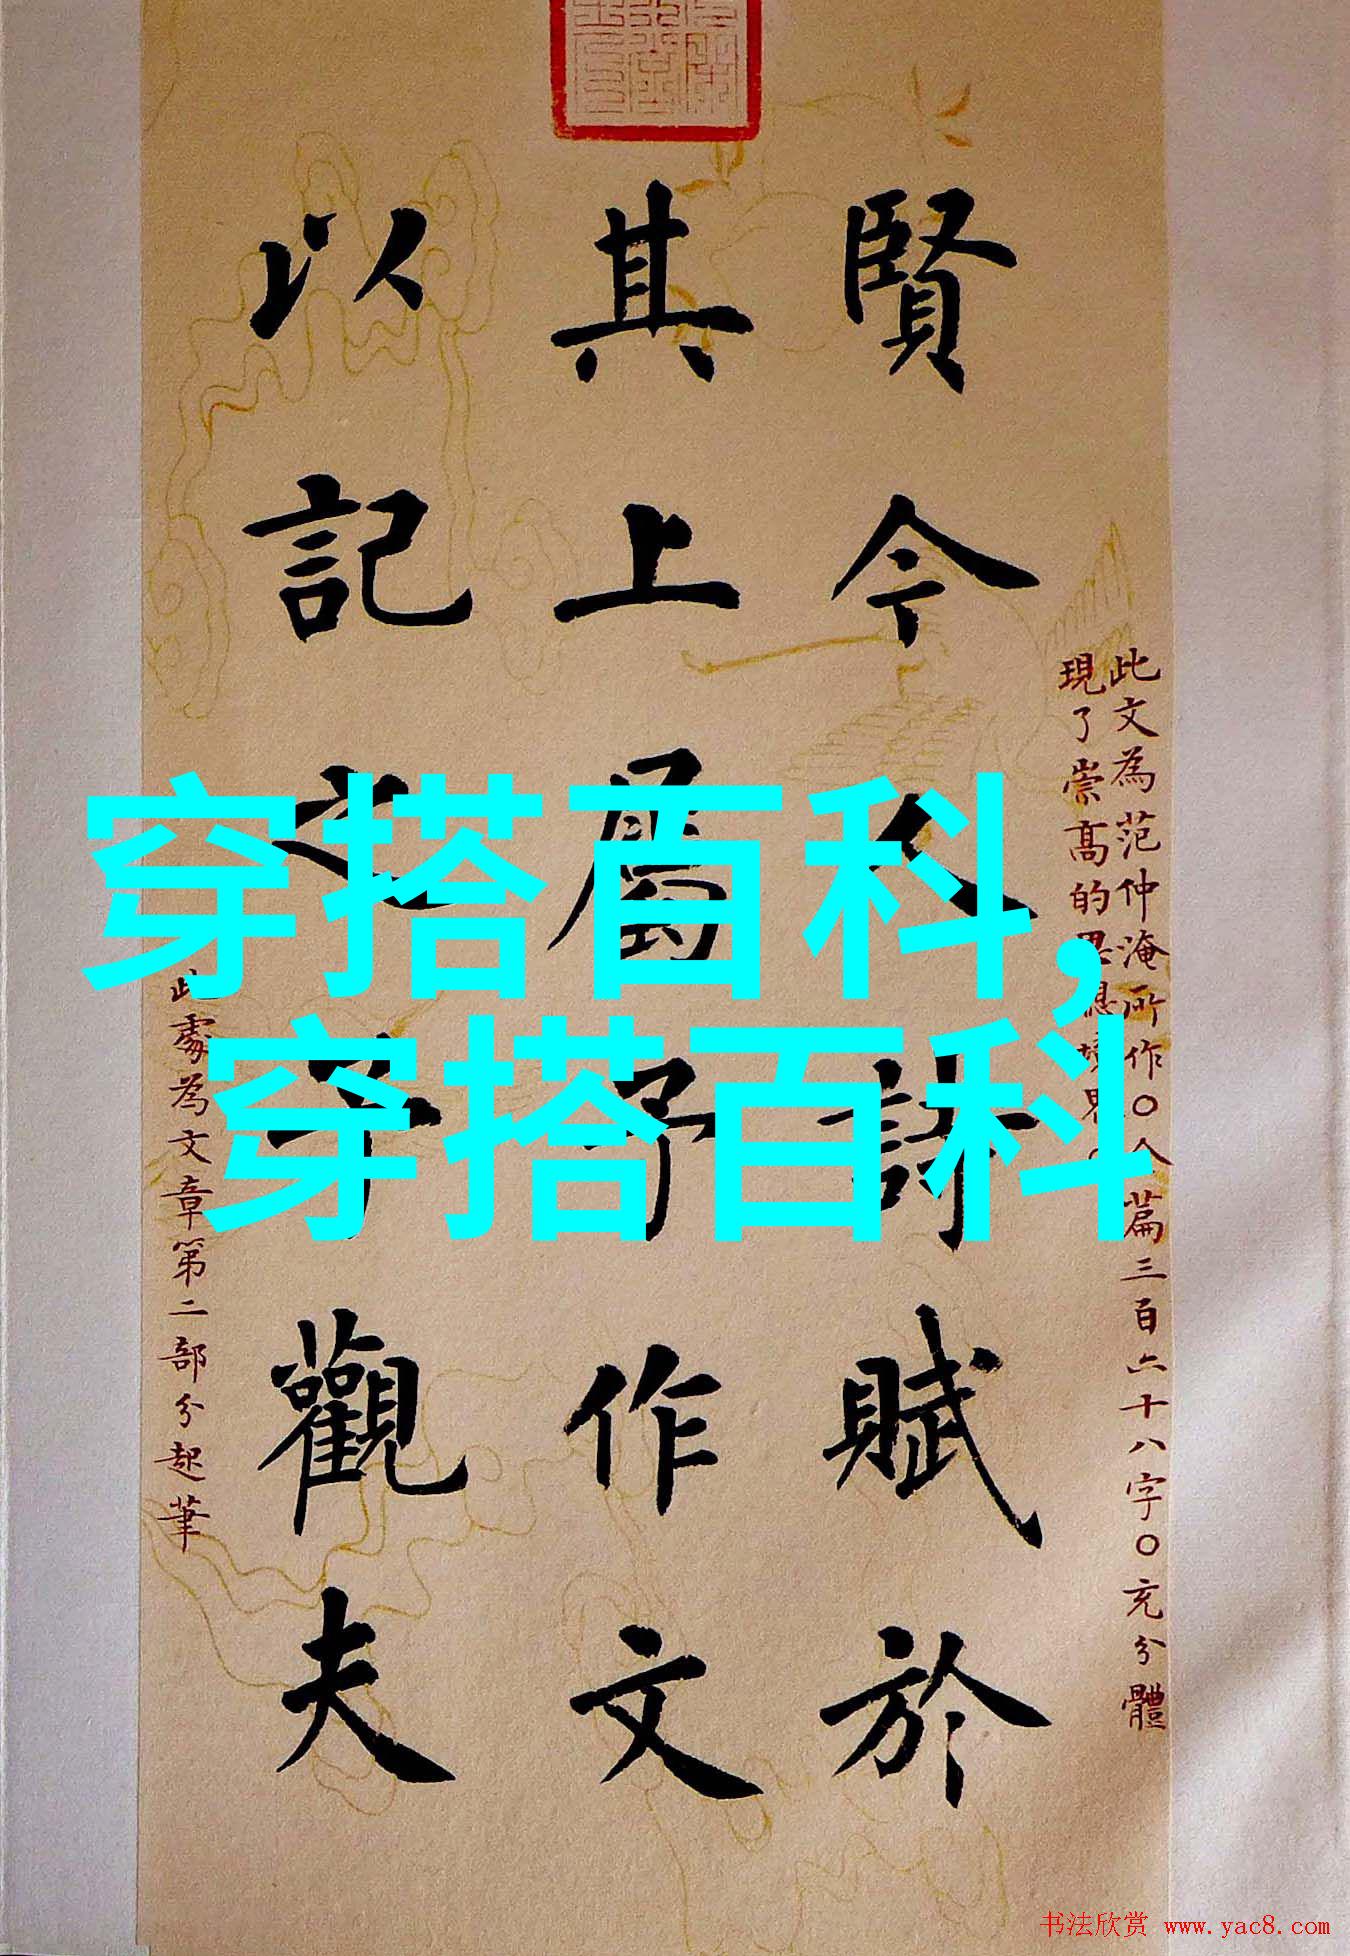 穿搭百科,
穿搭百科
此文為范仲淹所作〇全篇三百六十八字〇充分體
現了崇高的思想境界
賢今人詩賦於
其上屬予作文
以記之予觀夫
此處為文章第二部分起筆
书法欣赏 www.yac8.com